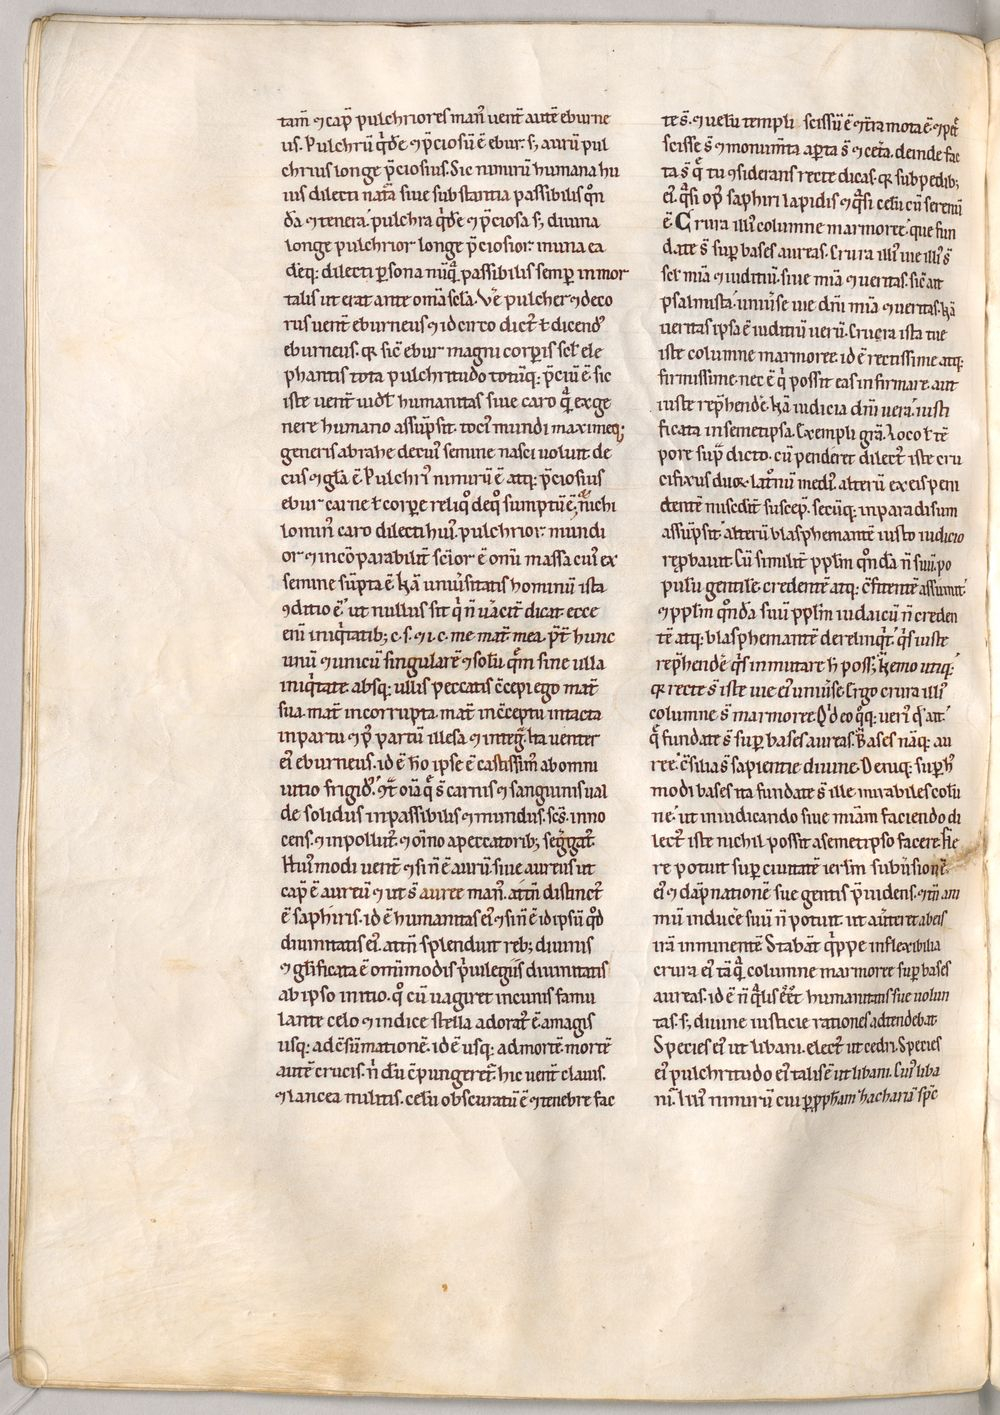 tam̄ ⁊ cap̄ pulchriores man̄ uent̄ autē eburne
us. Pulchrū q̇dē ⁊ p̄ciosū ē ebur. s; aurū pul
chrius longe p̄ciosius. Sic nimirū humana hu
ius dilecti nat̄a siue substantia passibilis qn̄
dā ⁊ tenera. pulchra q̇dē ⁊ p̄ciosa s; diuina
longe pulchrior longe p̄ciosior. in una ea
dēq: dilecti ꝑsona nūq̄ passibilis semꝑ inmor
talis ut erat ante om̄ia sc̄la. Vē pulcher ⁊ deco
rus uent̄ eburneus ⁊ idcirco dict̄ ł dicend᷒
eburneus. qꝛ sic̄ ebur magni corꝑis scł ele
phantis tota pulchritudo totūq: p̄ciū ē. sic
iste uent̄ uidł humanitas siue caro q̄ ex ge
nere humano assūpsit. toci᷒ mundi maximeq;
generis abrahe de cui᷒ semine nasci uoluit de
cus ⁊ gła ē. Pulchri᷒ nimirū ē atq: p̄ciosius
ebur carne ł corꝑe reliq̊ de q̊ sumptū ē. nichi
lomin᷒ caro dilecti hui᷒ pulchrior mundi
or ⁊ incōparabilit̄ sc̄ior ē om̄i massa cui᷒ ex
semine sūpta ē. Nā uniūsitatis hominū ista
ꝯditio ē. ut nullus sit q̇ n̄ uacit̄ dicat ecce
eni᷒ iniq̇tatib; c. s. ⁊ i. c. me mat̄ mea. p̄t hunc
unū ⁊ unicū singularē ⁊ solū quē sine ulla
iniq̇tate absq: ullis peccatis ꝯcepi ego mat̄
sua. mat̄ incorrupta. mat̄ in ꝯceptu intacta
in partu ⁊ p᷒ partū illesa ⁊ integ̃. Ita uenter
ei᷒ eburneus. id ē hō ipse ē castissim᷒ ab omni
uitio frigid᷒. ⁊ int̄ oīa q̄ s̄ carnis ⁊ sanguinis ual
de solidus inpassibilis ⁊ mundus. sc̄s. inno
cens. ⁊ inpollut᷒. ⁊ om̄ino a peccatorib; seg̃gat᷒.
Hui᷒modi uent̄ ⁊ si n̄ ē aurū. siue aureus ut
cap̄ ē aureū ⁊ ut s̄ auree man̄. attn̄ distinct᷒
ē saphiris. id ē humanitas ei᷒ ⁊ si n̄ ē id ipsū qd̄
diuinitatis ei᷒. attn̄ splenduit reb; diuinis
⁊ głificata ē om̄imodis p̄uilegiis diuinitatis
ab ipso initio. q̊ cū uagiret in cunis famu
lante celo ⁊ indice stella adorat᷒ ē a magis
usq: ad ꝯsūmationē. id ē usq: ad mortē. mortē
autē crucis. n̄ dū ꝯpungeret᷒ hic uent̄ clauis.
⁊ lancea militis. celū obscuratū ē ⁊ tenebre fac
te s̄. ⁊ uelū templi scissū ē ⁊ t̄ra mota ē. ⁊ pet̄
scisse s̄ ⁊ monum̄ta aꝑta s̄ ⁊ cet̄a. deinde fac
ta s̄ q̄ tu ꝯsiderans recte dicas. qꝛ sub pedib;
ei᷒ q̄si op᷒ saphiri lapidis ⁊ q̄si celū cū serenū
ē. Crura illi᷒ columne marmoree. que fun
date s̄ suꝑ bases aureas. Crura illi᷒ uie illi᷒ s̄
scł mīa ⁊ iuditiū. siue mīa ⁊ ueritas. sic̄ ait
psalmista. uniūse uie dn̄i mīa ⁊ ueritas. Nā
ueritas ipsa ē iuditiū uerū. Crura ista tue
iste columne marmoree. id ē rectissime atq:
firmissime. nec ē q̇ possit eas infirmare. aut
iuste rep̄hendē. Nā iudicia dn̄i uera. iusti
ficata in semetipsa. Exempli grā. Loco ł tē
pore sup̃ dicto. cū penderet dilect᷒ iste cru
cifixus duoꝝ latnū medi᷒. alterū ex eis peni
dentē misc̄dit̄ suscep̄. secūq: in paradisum
assūpsit. alterū blasphemantē iusto iudicio
rep̱bauit. Cū similit̄ pplm̄ qn̄dā n̄ suū. po
pulū gentilē. credentē atq: ꝯfitentē assūmit.
⁊ pplm̄ qn̄dā suū pplm̄ iudaicū n̄ creden
tē atq: blasphemantē derelinq̇t. q̇s iuste
rep̄hendē. q̇s inmutare h̄ poss;. Nemo utiq:
qꝛ recte s̄ iste uie ei᷒ uniūse. Ergo crura illi᷒
columne s̄ marmoree. Qd̄ eo q̊q: ueri᷒ q̄ ait.
q̄ fundate s̄ suꝑ bases aureas. Bases nāq: au
ree. ꝯsilia s̄ sapientie diuine. Deniq: suꝑ h᷒
modi bases ita fundate s̄ ille mirabiles colū
ne. ut in iudicando siue mīam faciendo di
lect᷒ iste nichil possit a semetipso facere. Fle
re potuit suꝑ ciuitatē ierłm subūsionē.
ei᷒ ⁊ dāpnationē sue gentis p̄uidens. ⁊ tn̄ ani
mū inducē suū n̄ potuit ut aut̄ret ab eis
irā imminentē. Stabāt q̇ppe inflexibilia
crura ei᷒ tāq̄ columne marmoree suꝑ bases
aureas. id ē n̄ q̄lis eēt humanitatis sue uolun
tas. s; diuine iusticie rationes adtendebat.
Species ei᷒ ut libani. elect᷒ ut cedri. Species
ei᷒ pulchritudo ei᷒ talis ē ut libani. Cui᷒ liba
ni. Illi᷒ nimirū cui ꝑ pph̄am zacharīā sp̄c